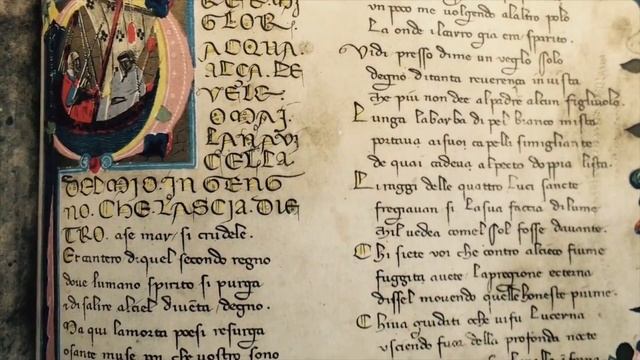 RER. MI
GLIOR
ACQUA
ALÇA. LE
VELE
OMAI
LANAVI
CELLA
DELMIO. INGENG
NO. CHE LASCIA. DIE
TRO. ase mar si crudele.
Et cantero di quel secondo regno
dove lumano spirito si purga
et di salire alciel diventa degno.
Ma qui lamorta poesi resurga
osante muse poi che vostro sono
un poco me volgendo alaltro polo
La onde ilcarro gia era sparito.
Vidi presso dime un veglo solo
degno ditanta reverença invista
che piu non dee alpadre alcun figliuolo.
Lunga labarba di pel bianco mista
portava asuoi capelli simigliante
de quai cadeva alpecto doppia lista.
Li raggi delle quattro luci sancte
fregiavan si lasua faccia dilume
chil vedea comel sol fosse davante.
Chi siete voi che contro alcieco fiume
fuggita avete la pregione etterna
dissel movendo quelle honeste piume.
Chi va guidati o che vi fu lucerna
uscendo fuor della profonda nocte